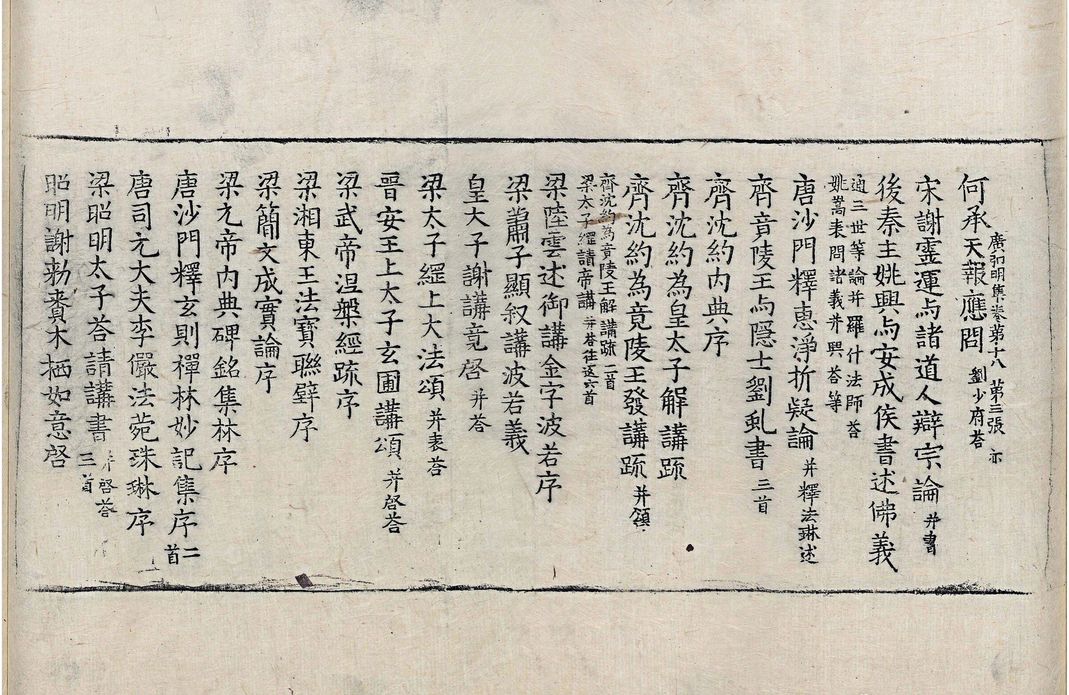 廣弘明集卷第十八 第三張 亦
何承天報應問 劉少府荅
宋謝靈運与諸道人辯宗論 并書
後秦主姚興与安成侯書述佛義
通三世等論并羅什法師荅
姚嵩表問諸義并興荅等
唐沙門釋惠淨折疑論 并釋法琳述
齊竟陵王与隱士劉虬書 三首
齊沈約內典序
齊沈約為皇太子解講䟽
齊沈約為竟陵王發講䟽 并頌
齊沈約為竟陵王解講䟽二首
梁太子綱請帝講 并荅往返六首
梁陸雲述御講金字波若序
梁蕭子顯叙講波若義
皇大子謝講竟啓 并荅
梁太子綱上大法頌 并表荅
晉安王上太子玄圃講頌 并啓荅
梁武帝涅槃經䟽序
梁湘東王法寶聯辟序
梁簡文成實論序
梁元帝內典碑銘集林序
唐沙門釋玄則禪林妙記集序 二首
唐司元大夫李儼法菀珠琳序
梁昭明太子荅請講書 并啓荅三首
昭明謝勑賚木栖如意啓